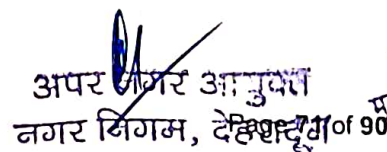 अपर नगर आयुक्त
नगर निगम, देहरादून
of 90